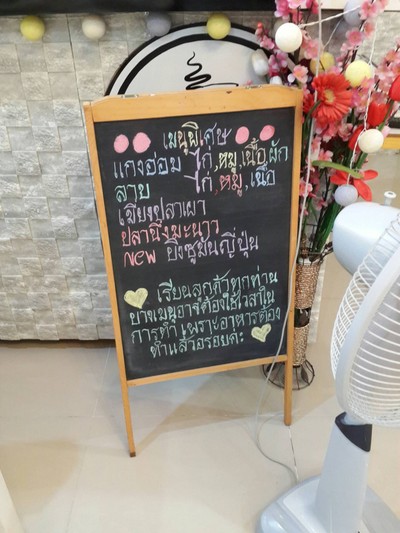 เมนูพิเศษ
แกงอ่อม ไก่,หมู,เนื้อ,ผัก
ลาบ ไก่,หมู,เนื้อ
เมี่ยงปลาเผา
ปลานึ่งมะนาว
NEW ยิ่งซูมันญี่ปุ่น
เรียนลูกค้าทุกท่าน
บางเมนูอาจต้องใช้เวลาใน
การทำ เพราะอาหารต้อง
ทำแล้วอร่อยค่ะ